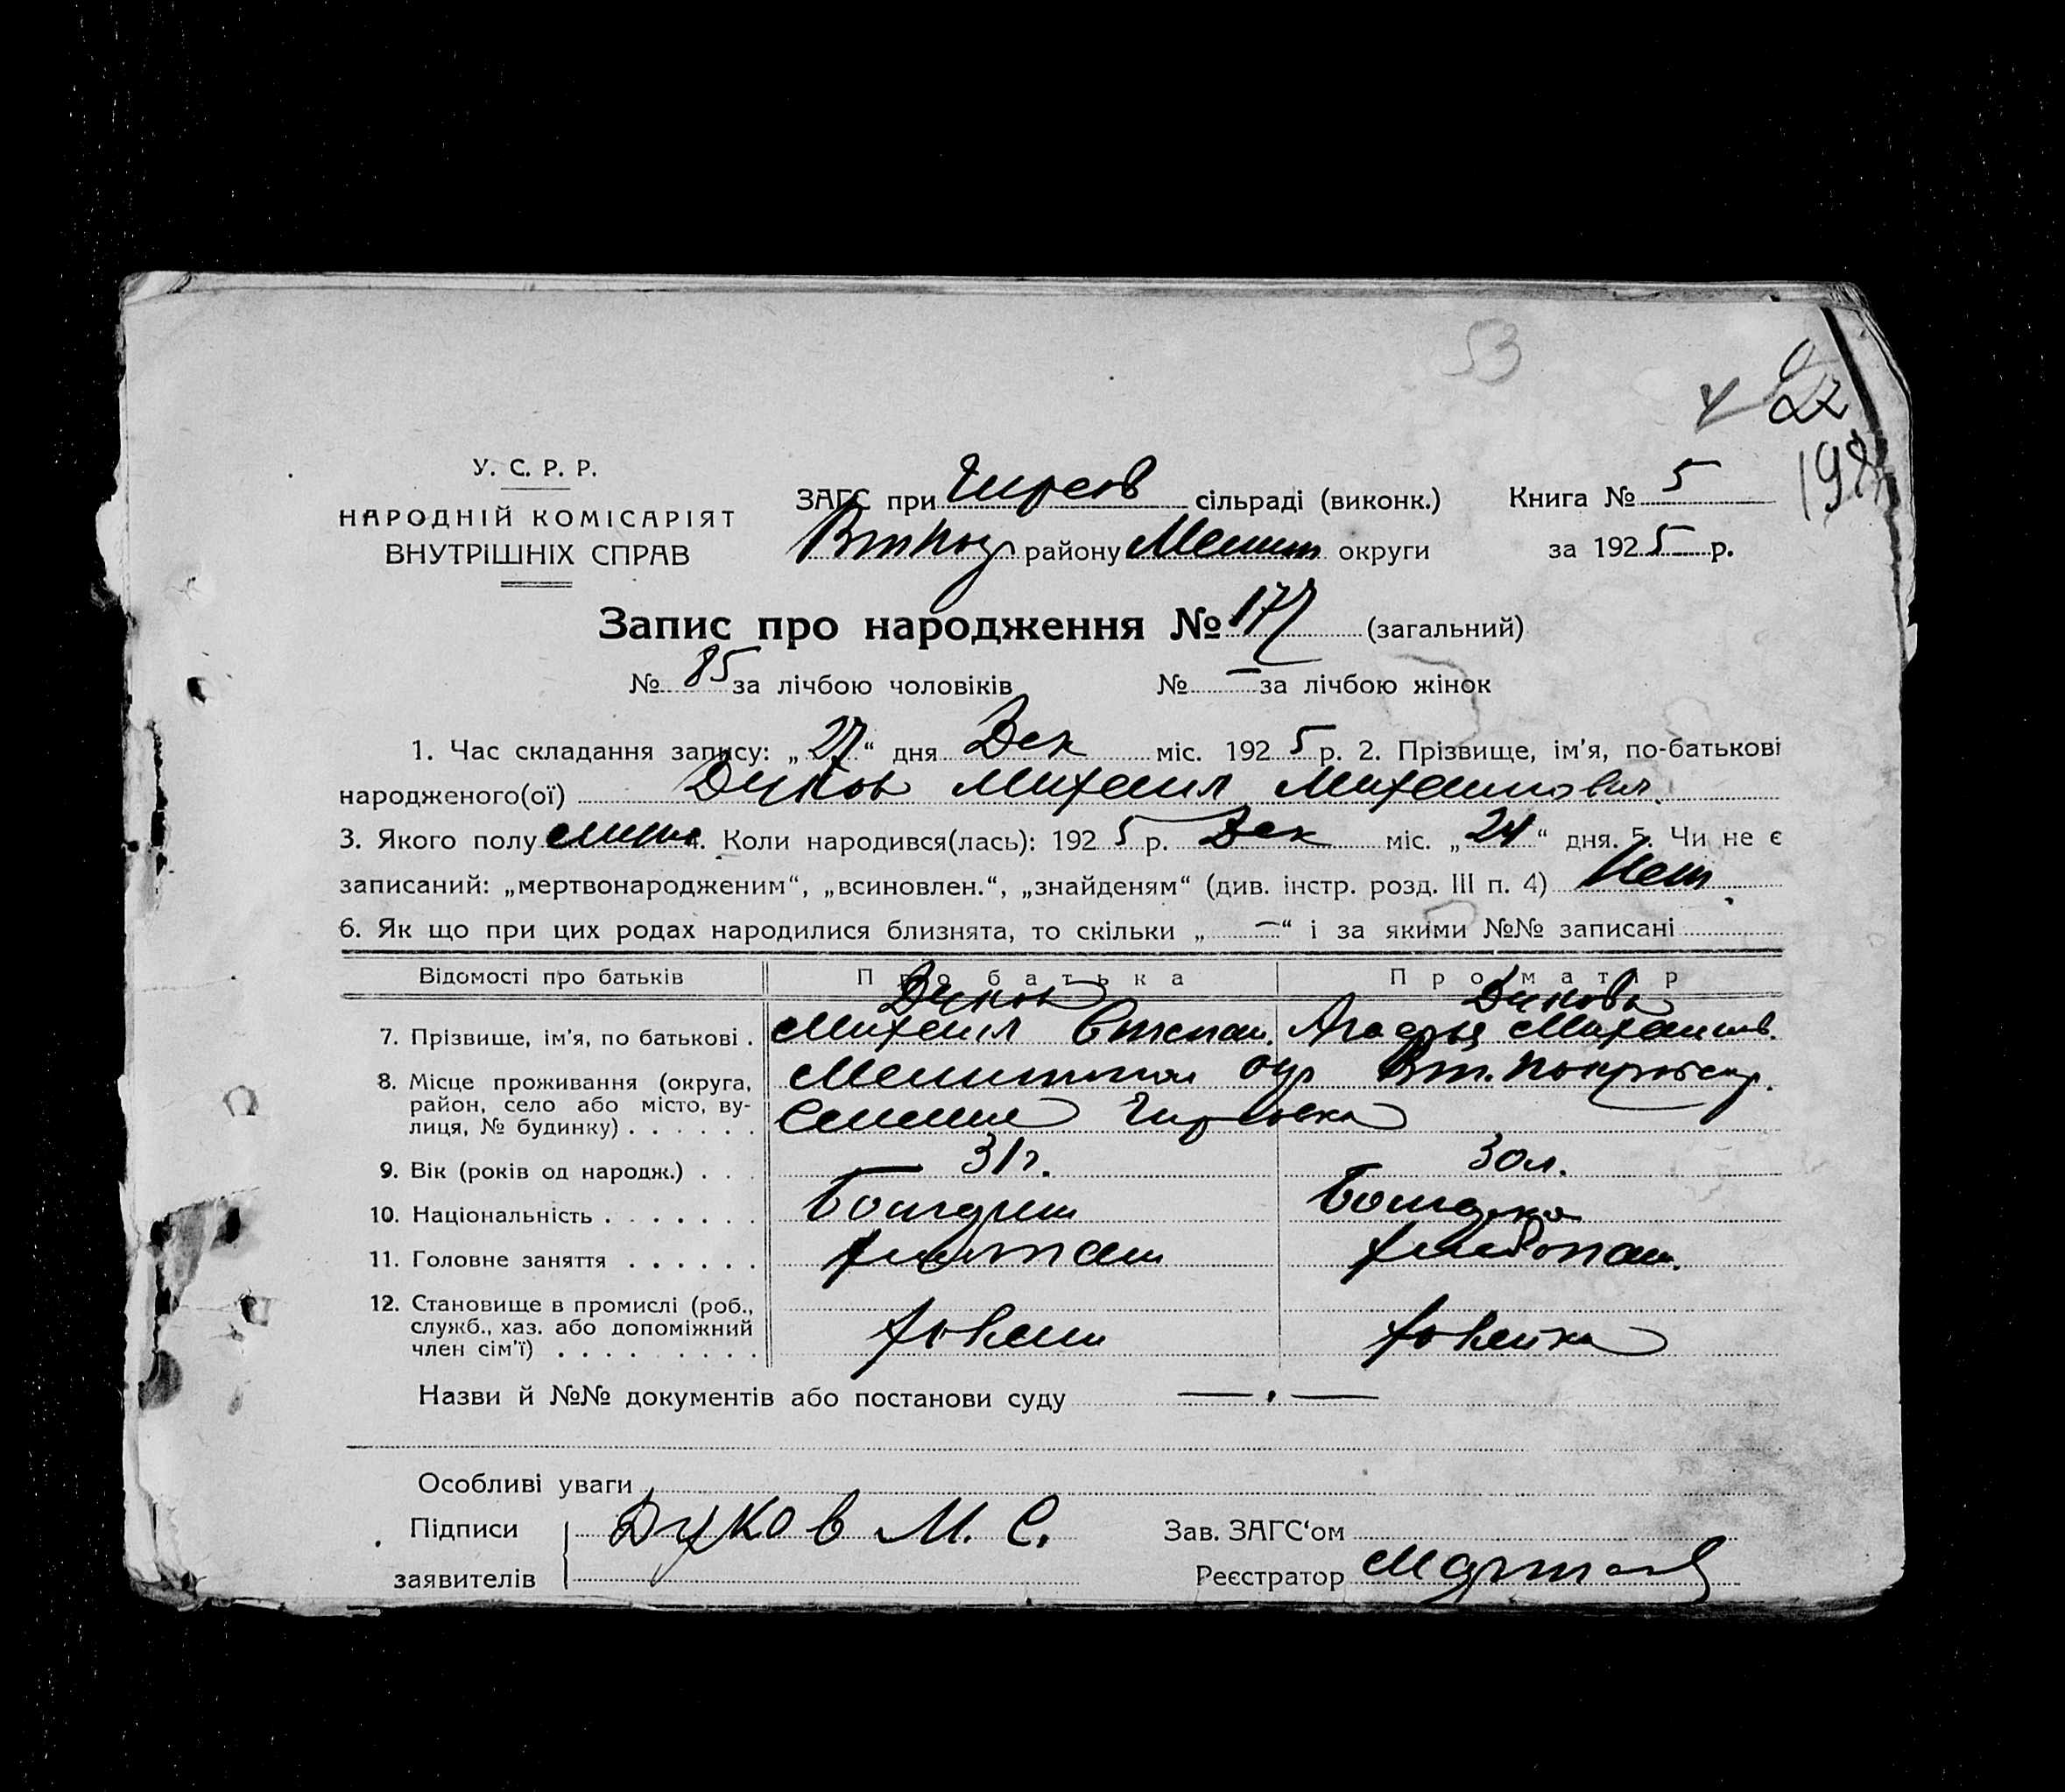 53
У. С. Р. Р.
НАРОДНІЙ КОМІСАРІЯТ
ВНУТРІШНІХ СПРАВ
ЗАГС при сільраді (виконк.) Книга № 5
району Мелит округи за 1925 р.
Запис про народження № 177 (загальний)
№ 85 за лічбою чоловіків № — за лічбою жінок
1. Час складання запису: „27“ дня Дек міс. 1925 р. 2. Прізвище, ім'я, по-батькові
народженого(ої) Дуков Михаил Михаилович
3. Якого полу 4. Коли народився(лась): 1925 р. Дек міс. „24“ дня. 5. Чи не є
записаний: „мертвонародженим“, „всиновлен.“, „знайденям“ (див. інстр. розд. III п. 4) Нет
6. Як що при цих родах народилися близнята, то скільки „—“ і за якими №№ записані
Відомості про батьків Про батька Про матір
Дуков Дукова
7. Прізвище, ім'я, по батькові . Михаил Степан. Михаилов.
8. Місце проживання (округа,
район, село або місто, ву-
лиця, № будинку) . . . . . .
Мелитопол окр Вт. Покровск р.
Селение
9. Вік (років од народж.) . . . 31 г. 30 л.
10. Національність . . . . . . .
11. Головне заняття . . . . . . хлебопаш хлебопаш.
12. Становище в промислі (роб.,
служб., хаз. або допоміжний
член сім'ї) . . . . . . . . .
хозяин хозяйка
Назви й №№ документів або постанови суду — " —
Особливі уваги
Підписи Дуков М. С. Зав. ЗАГС‘ом
заявителів Реєстратор